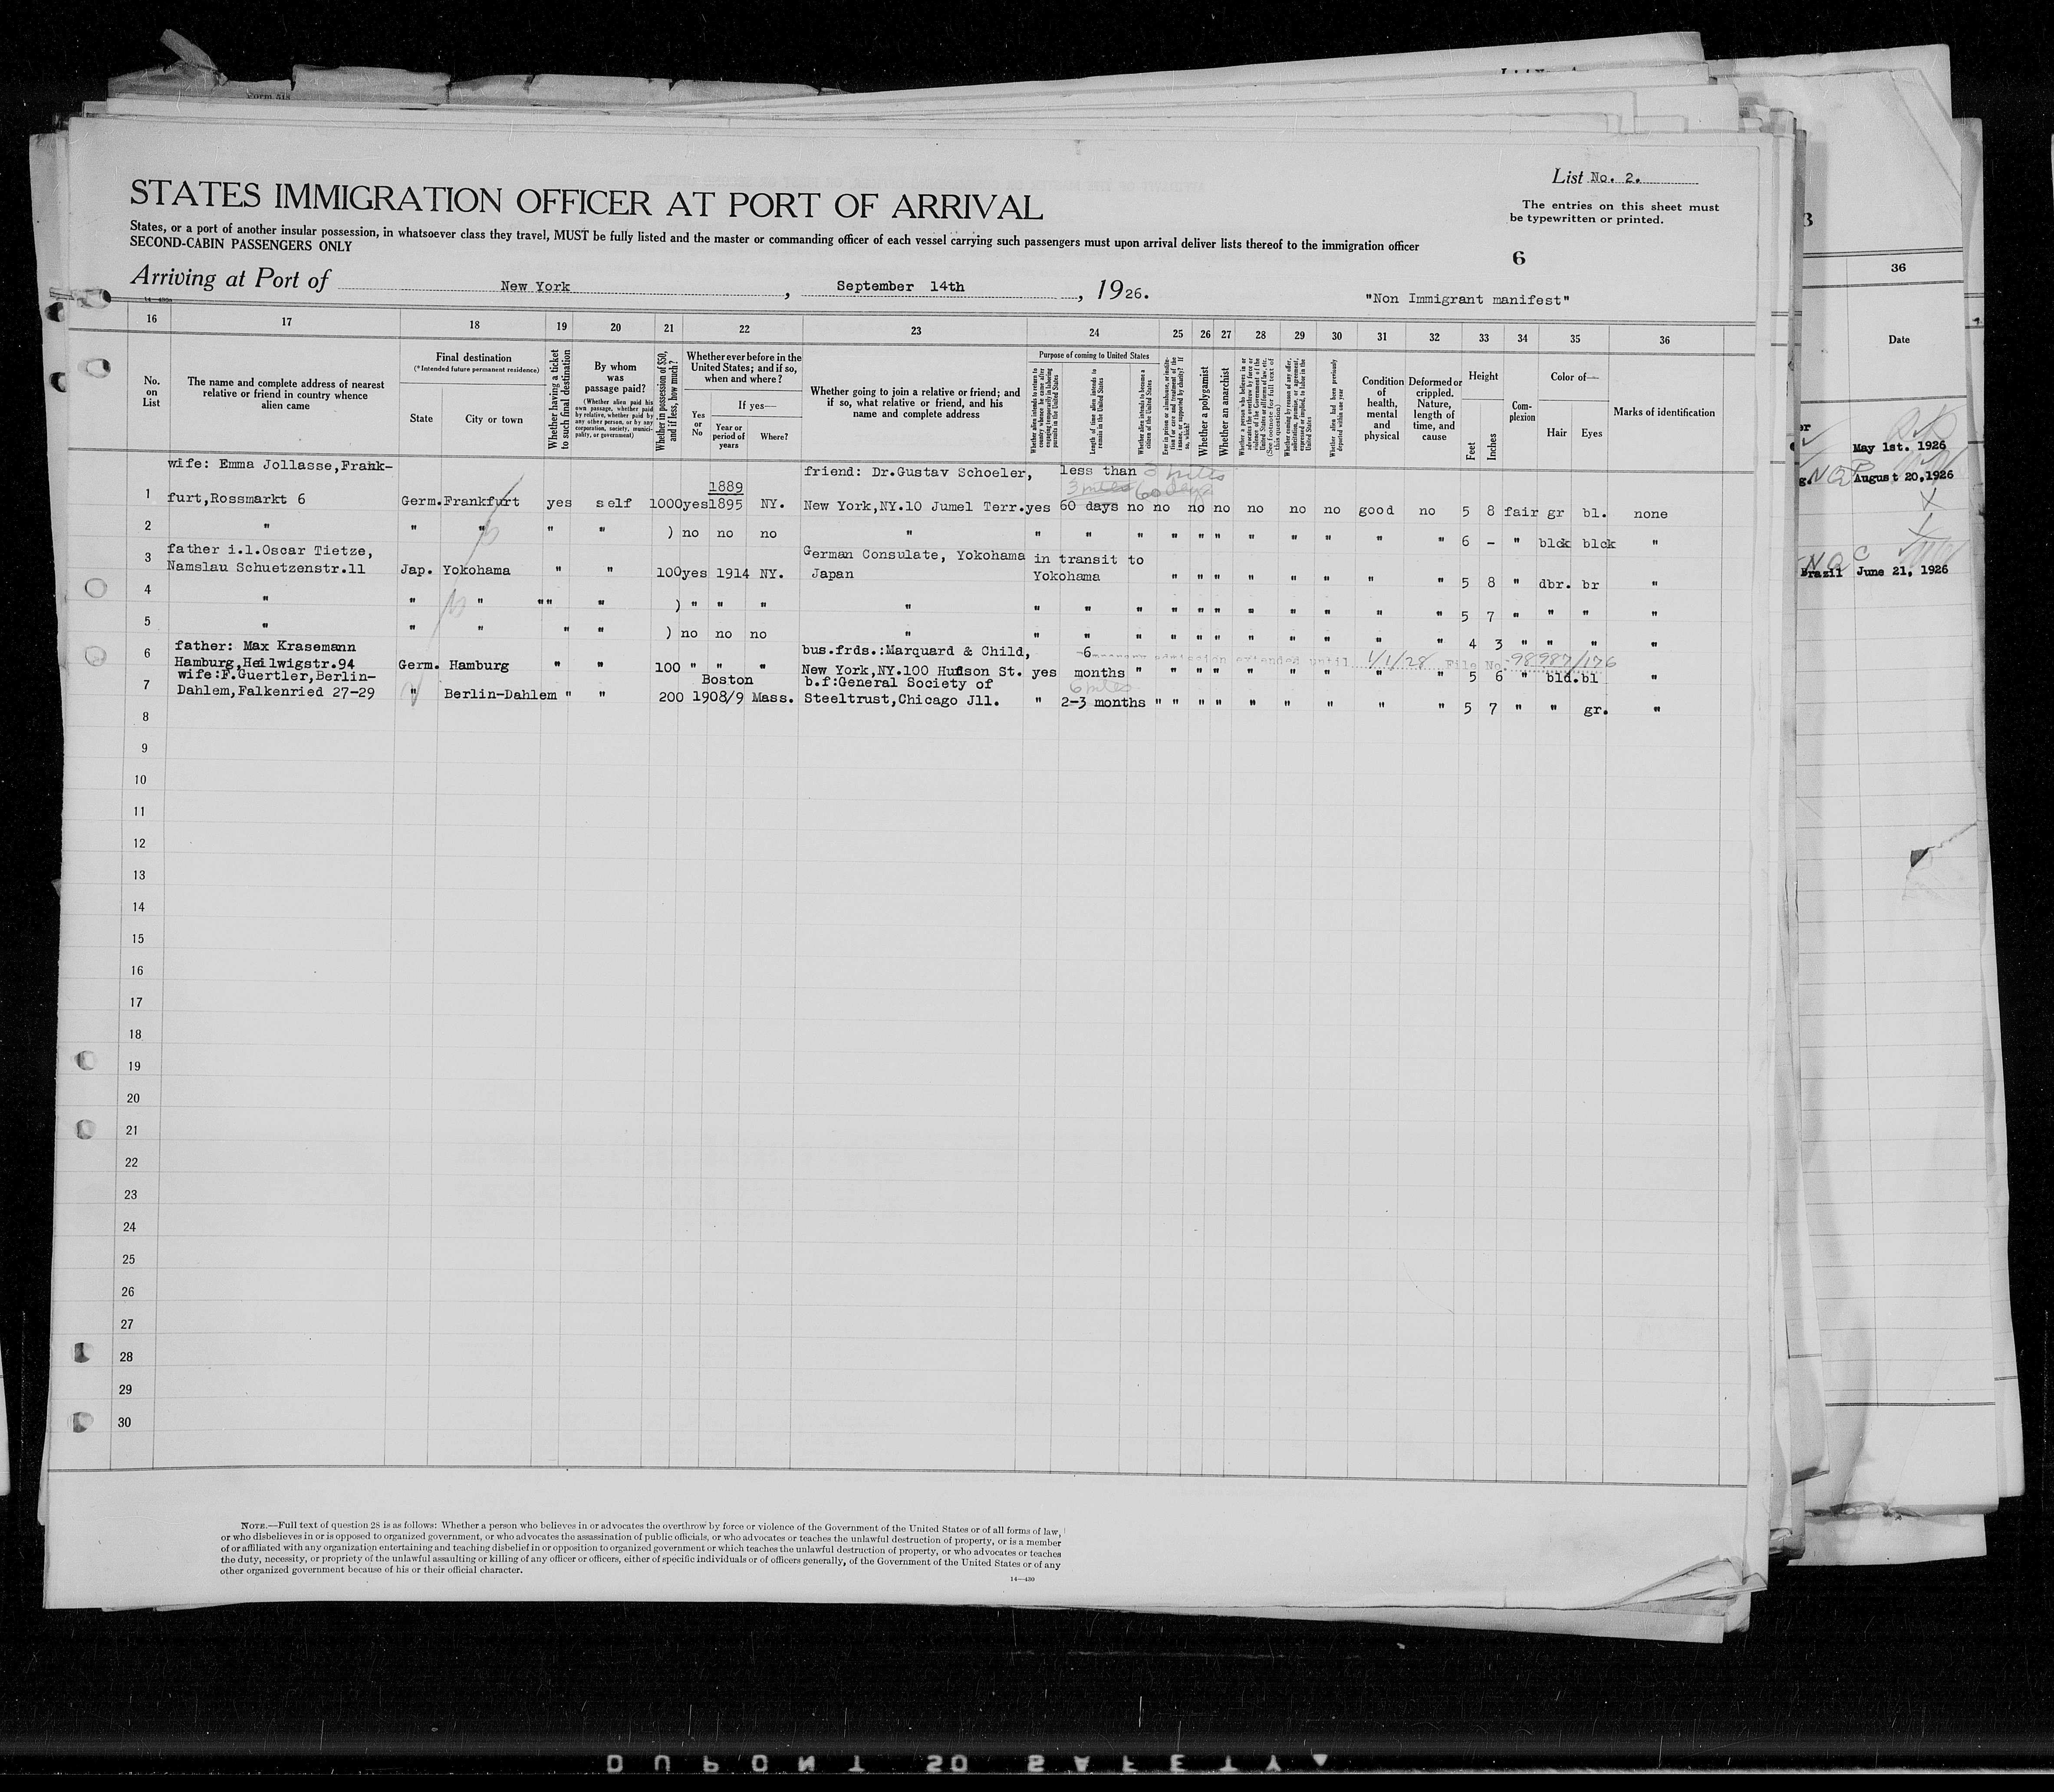 Form 518
List No. 2.
STATES IMMIGRATION OFFICER AT PORT OF ARRIVAL
The entries on this sheet must
be typewritten or printed.
States, or a port of another insular possession, in whatsoever class they travel, MUST be fully listed and the master or commanding officer of each vessel carrying such passengers must upon arrival deliver lists thereof to the immigration officer
SECOND-CABIN PASSENGERS ONLY
6
Arriving at Port of New York, September 14th, 1926.
"Non Immigrant manifest"
16 17 18 19 20 21 22 23 24 25 26 27 28 29 30 31 32 33 34 35 36
No. on List
The name and complete address of nearest relative or friend in country whence alien came
Final destination
(*Intended future permanent residence)
State
City or town
Whether having a ticket to such final destination
By whom was passage paid?
(Whether alien paid his own passage, whether paid by relative, whether paid by any other person, or by any corporation, society, municipality, or government)
Whether in possession of $50, and if less, how much?
Whether ever before in the United States; and if so, when and where?
Yes or No
If yes—
Year or period of years
Where?
Whether going to join a relative or friend; and if so, what relative or friend, and his name and complete address
Purpose of coming to United States
Whether alien intends to return to country whence he came after engaging temporarily in laboring pursuits in the United States
Length of time alien intends to remain in the United States
Whether alien intends to become a citizen of the United States
Ever in prison or almshouse, or institution for care and treatment of the insane, or supported by charity? If so, which?
Whether a polygamist
Whether an anarchist
Whether a person who believes in or advocates the overthrow by force or violence of the Government of the United States or all forms of law, etc. (See footnote for full text of this question)
Whether coming by reason of any offer, solicitation, promise, or agreement, expressed or implied, to labor in the United States
Whether alien had been previously deported within one year
Condition of health, mental and physical
Deformed or crippled. Nature, length of time, and cause
Height
Feet
Inches
Complexion
Color of—
Hair
Eyes
Marks of identification
wife: Emma Jollasse,Frank- friend: Dr.Gustav Schoeler, less than
1889
1 furt,Rossmarkt 6 Germ.Frankfurt yes self 1000yes1895 NY. New York,NY.10 Jumel Terr.yes 60 days no no no no no no no good no 5 8 fair gr bl. none
2 " " " " " ) no no no " " " " " " " " " " " " 6 - " blck blck "
father i.l.Oscar Tietze, German Consulate, Yokohama in transit to
3 Namslau Schuetzenstr.11 Jap. Yokohama " " 100yes 1914 NY. Japan Yokohama " " " " " " " " 5 8 " dbr. br "
4 " " " "" " ) " " " " " " " " " " " " " " " 5 7 " " " "
5 " " " " " ) no no no " " " " " " " " " " " " 4 3 " " " "
father: Max Krasemann bus.frds.:Marquard & Child, 6 admission extended until 1/1/28 File No. 98987/176
6 Hamburg,Heilwigstr.94 Germ. Hamburg " " 100 " " " New York,NY.100 Hudson St. yes months " " " " " " " " " 5 6 " bld.bl "
wife:F.Guertler,Berlin- Boston b.f:General Society of 6 mtes
7 Dahlem,Falkenried 27-29 " Berlin-Dahlem " " 200 1908/9 Mass. Steeltrust,Chicago Jll. " 2-3 months " " " " " " " " " 5 7 " " gr. "
8
9
10
11
12
13
14
15
16
17
18
19
20
21
22
23
24
25
26
27
28
29
30
NOTE.—Full text of question 28 is as follows: Whether a person who believes in or advocates the overthrow by force or violence of the Government of the United States or of all forms of law,
or who disbelieves in or is opposed to organized government, or who advocates the assassination of public officials, or who advocates or teaches the unlawful destruction of property, or is a member
of or affiliated with any organization entertaining and teaching disbelief in or opposition to organized government or which teaches the unlawful destruction of property, or who advocates or teaches
the duty, necessity, or propriety of the unlawful assaulting or killing of any officer or officers, either of specific individuals or of officers generally, of the Government of the United States or of any
other organized government because of his or their official character.
14—430
36
Date
May 1st. 1926
August 20,1926
Brazil June 21, 1926
DUPONT SO SAFETY